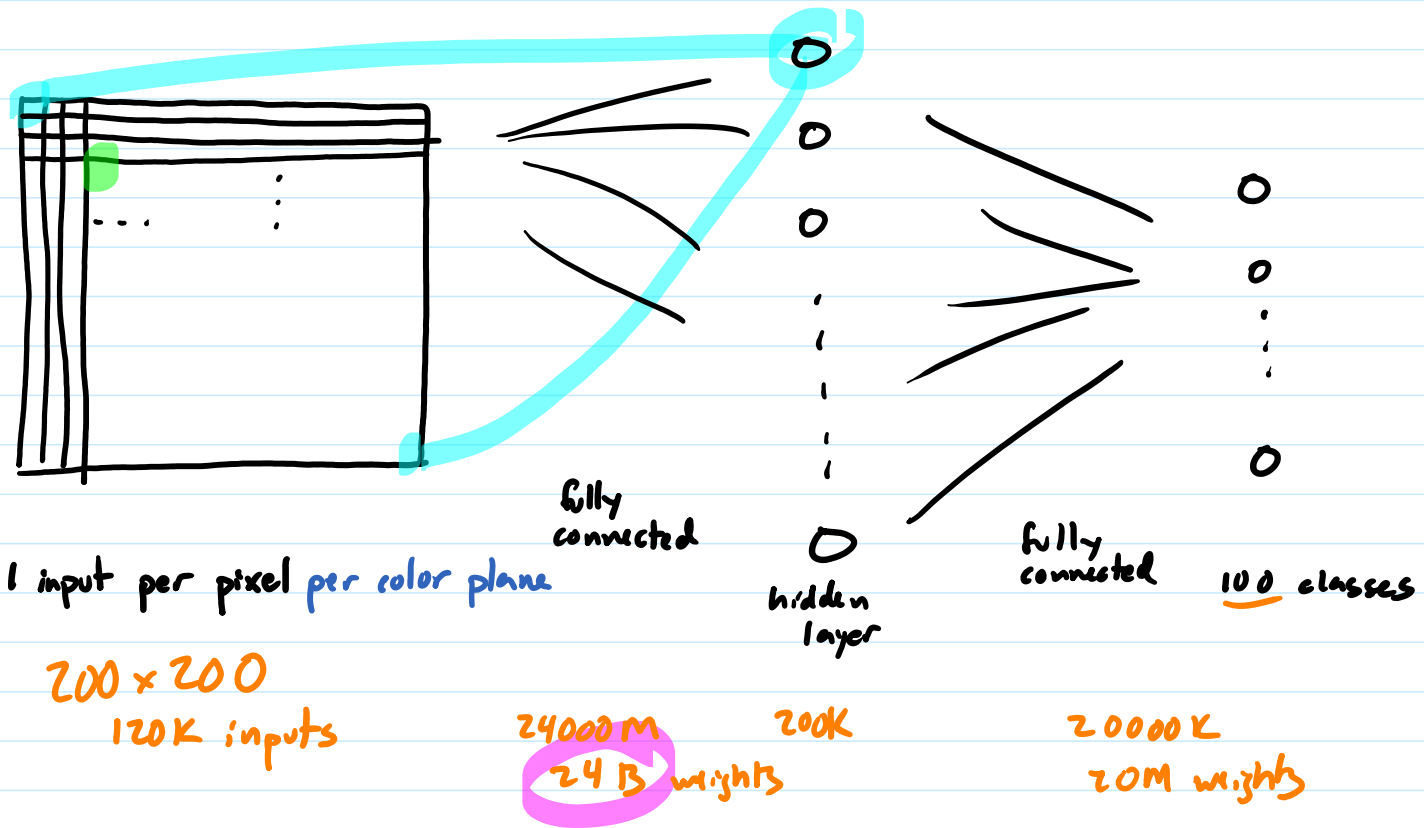 fully
connected
fully
connected
1 input per pixel per color plane
hidden
layer
100 classes
200 x 200
120K inputs
24000M
24B weights
200K
20000K
20M weights